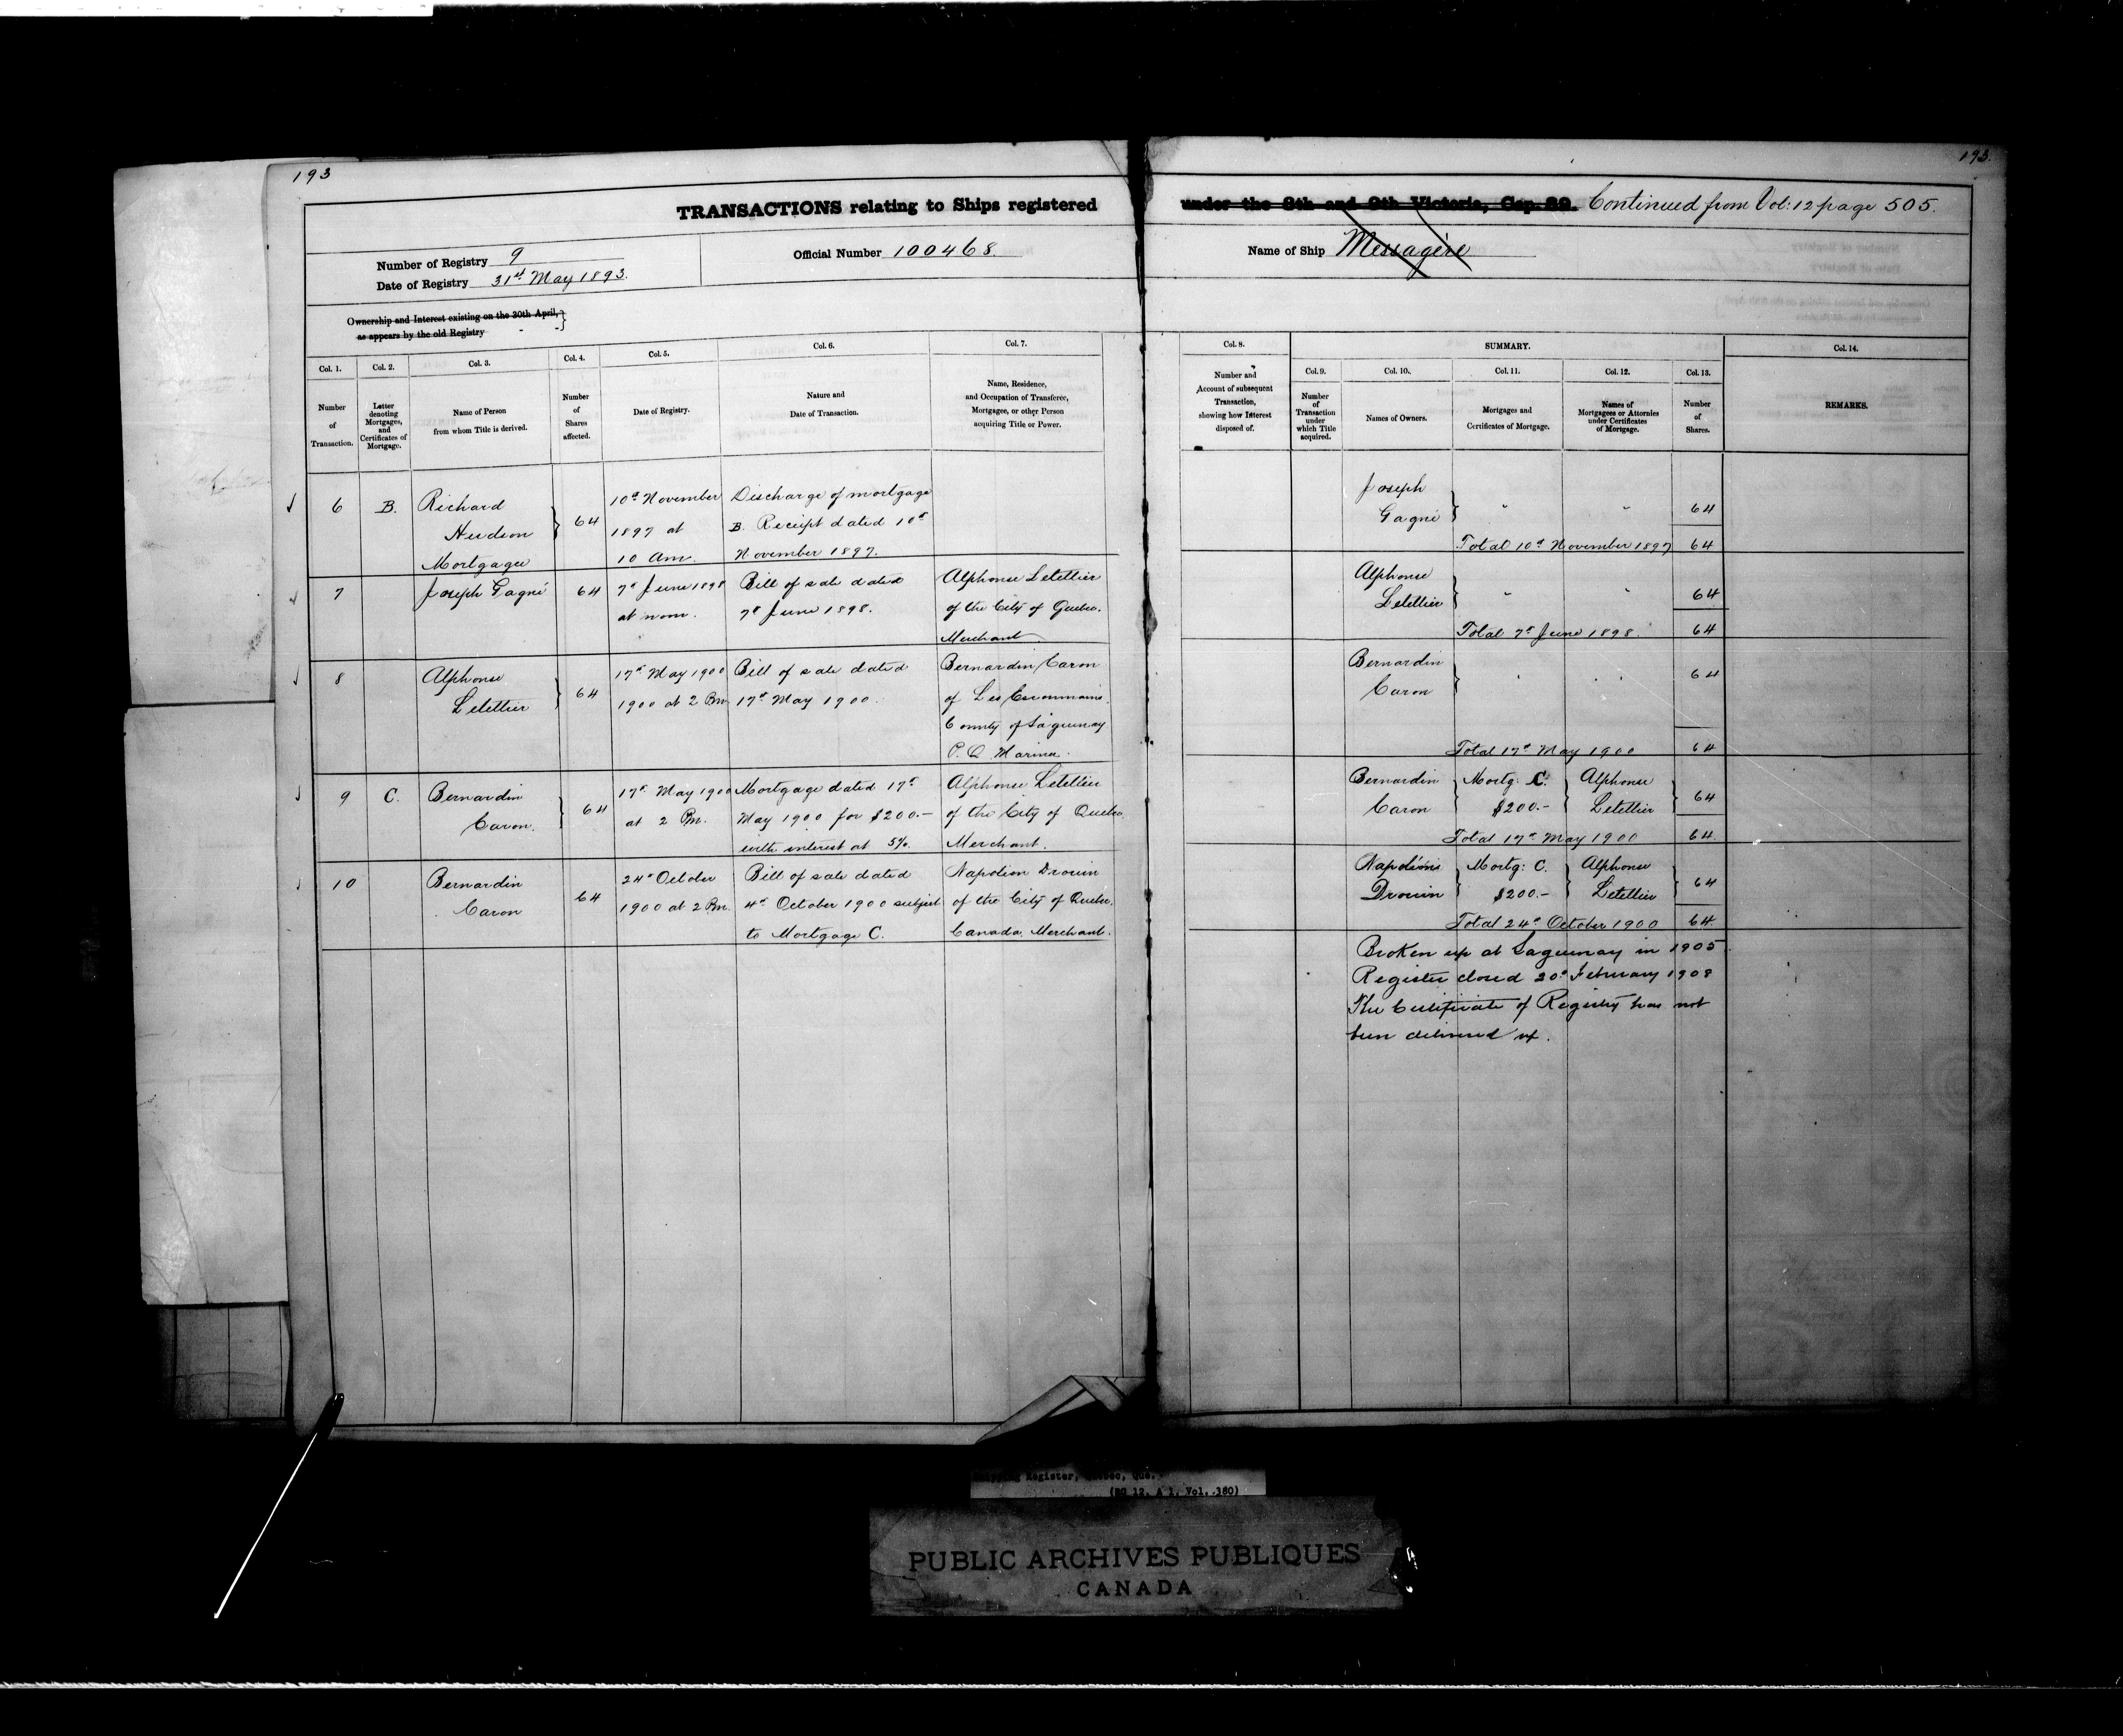 193
193.
TRANSACTIONS relating to Ships registered under the 8th and 9th Victoria, Cap. 89. Continued from Vol: 12 page 505.
Number of Registry 9
Date of Registry 31st May 1893.
Official Number 100468.
Name of Ship Messagère
Ownership and Interest existing on the 30th April,
as appears by the old Registry
Col. 1.
Number
of
Transaction.
Col. 2.
Letter
denoting
Mortgages,
and
Certificates of
Mortgage.
Col. 3.
Name of Person
from whom Title is derived.
Col. 4.
Number
of
Shares
affected.
Col. 5.
Date of Registry.
Col. 6.
Nature and
Date of Transaction.
Col. 7.
Name, Residence,
and Occupation of Transferee,
Mortgagee, or other Person
acquiring Title or Power.
Col. 8.
Number and
Account of subsequent
Transaction,
showing how Interest
disposed of.
SUMMARY.
Col. 9.
Number
of
Transaction
under
which Title
acquired.
Col. 10.
Names of Owners.
Col. 11.
Mortgages and
Certificates of Mortgage.
Col. 12.
Names of
Mortgagees or Attornies
under Certificates
of Mortgage.
Col. 13.
Number
of
Shares.
Col. 14.
REMARKS.
6
B.
Richard
Hudson
Mortgagee
64
10th November
1897 at
10 Am.
Discharge of mortgage
B. Receipt dated 10th
November 1897.
Joseph
Gagné
" "
64
Total 10th November 1897 64
7
Joseph Gagné
64
7th June 1898
at noon.
Bill of sale dated
7th June 1898.
Alphonse Letellier
of the City of Quebec.
Merchant
Alphonse
Letellier
" "
64
Total 7th June 1898. 64
8
Alphonse
Letellier
64
17th May 1900
1900 at 2 Pm.
Bill of sale dated
17th May 1900.
Bernardin Caron
of Les Escoumains
County of Saguenay
P. Q. Mariner.
Bernardin
Caron
" "
64
Total 17th May 1900 64
9
C.
Bernardin
Caron.
64
17th May 1900
at 2 Pm.
Mortgage dated 17th
May 1900 for $200.-
with interest at 5%.
Alphonse Letellier
of the City of Quebec
Merchant.
Bernardin
Caron
Mortg: C.
$200.-
Alphonse
Letellier
64
Total 17th May 1900 64.
10
Bernardin
Caron
64
24th October
1900 at 2 Pm.
Bill of sale dated
4th October 1900 subject
to Mortgage C.
Napoleon Drouin
of the City of Quebec.
Canada, Merchant.
Napoléon
Drouin
Mortg: C.
$200.-
Alphonse
Letellier
64
Total 24th October 1900 64.
Broken up at Saguenay in 1905.
Register closed 20th February 1908
The Certificate of Registry has not
been delivered up.
Shipping Register, Quebec, Que.
(RG 12, A 1, Vol. 380)
PUBLIC ARCHIVES PUBLIQUES
CANADA